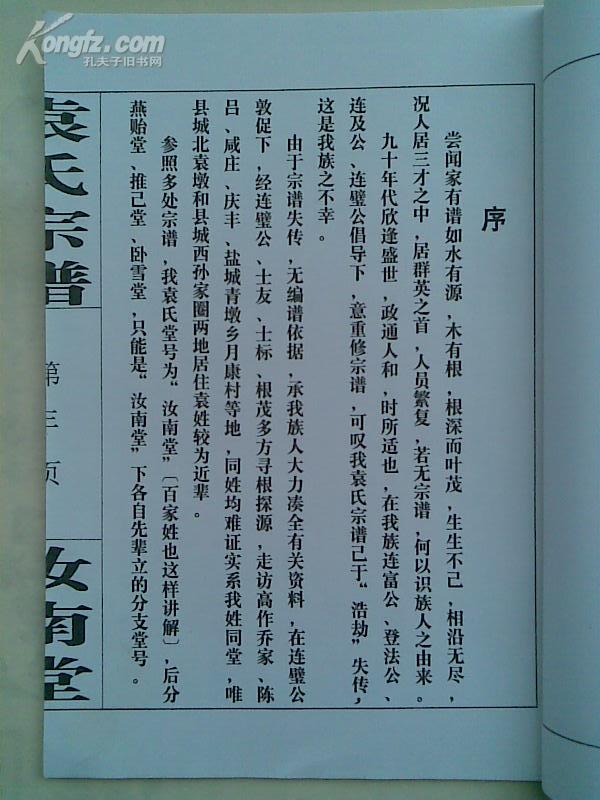 Kongfz.com
孔夫子旧书网
序
尝闻家有谱如水有源，木有根，根深而叶茂，生生不己，相沿无尽，
况人居三才之中，居群英之首，人员繁复，若无宗谱，何以识族人之由来。
九十年代欣逢盛世，政通人和，时所适也，在我族连富公、登法公、
连及公、连璧公倡导下，意重修宗谱，可叹我袁氏宗谱己于“浩劫”失传，
这是我族之不幸。
由于宗谱失传，无编谱依据，承我族人大力凑全有关资料，在连璧公
敦促下，经连璧公、士友、士标、根茂多方寻根探源，走访高作乔家、陈
吕、咸庄、庆丰、盐城青墩乡月康村等地，同姓均难证实系我姓同堂，唯
县城北袁墩和县城西孙家圈两地居住袁姓较为近辈。
参照多处宗谱，我袁氏堂号为“汝南堂”〔百家姓也这样讲解〕，后分
燕贻堂、推己堂、卧雪堂，只能是“汝南堂”下各自先辈立的分支堂号。
袁氏宗谱
第三页
汝南堂